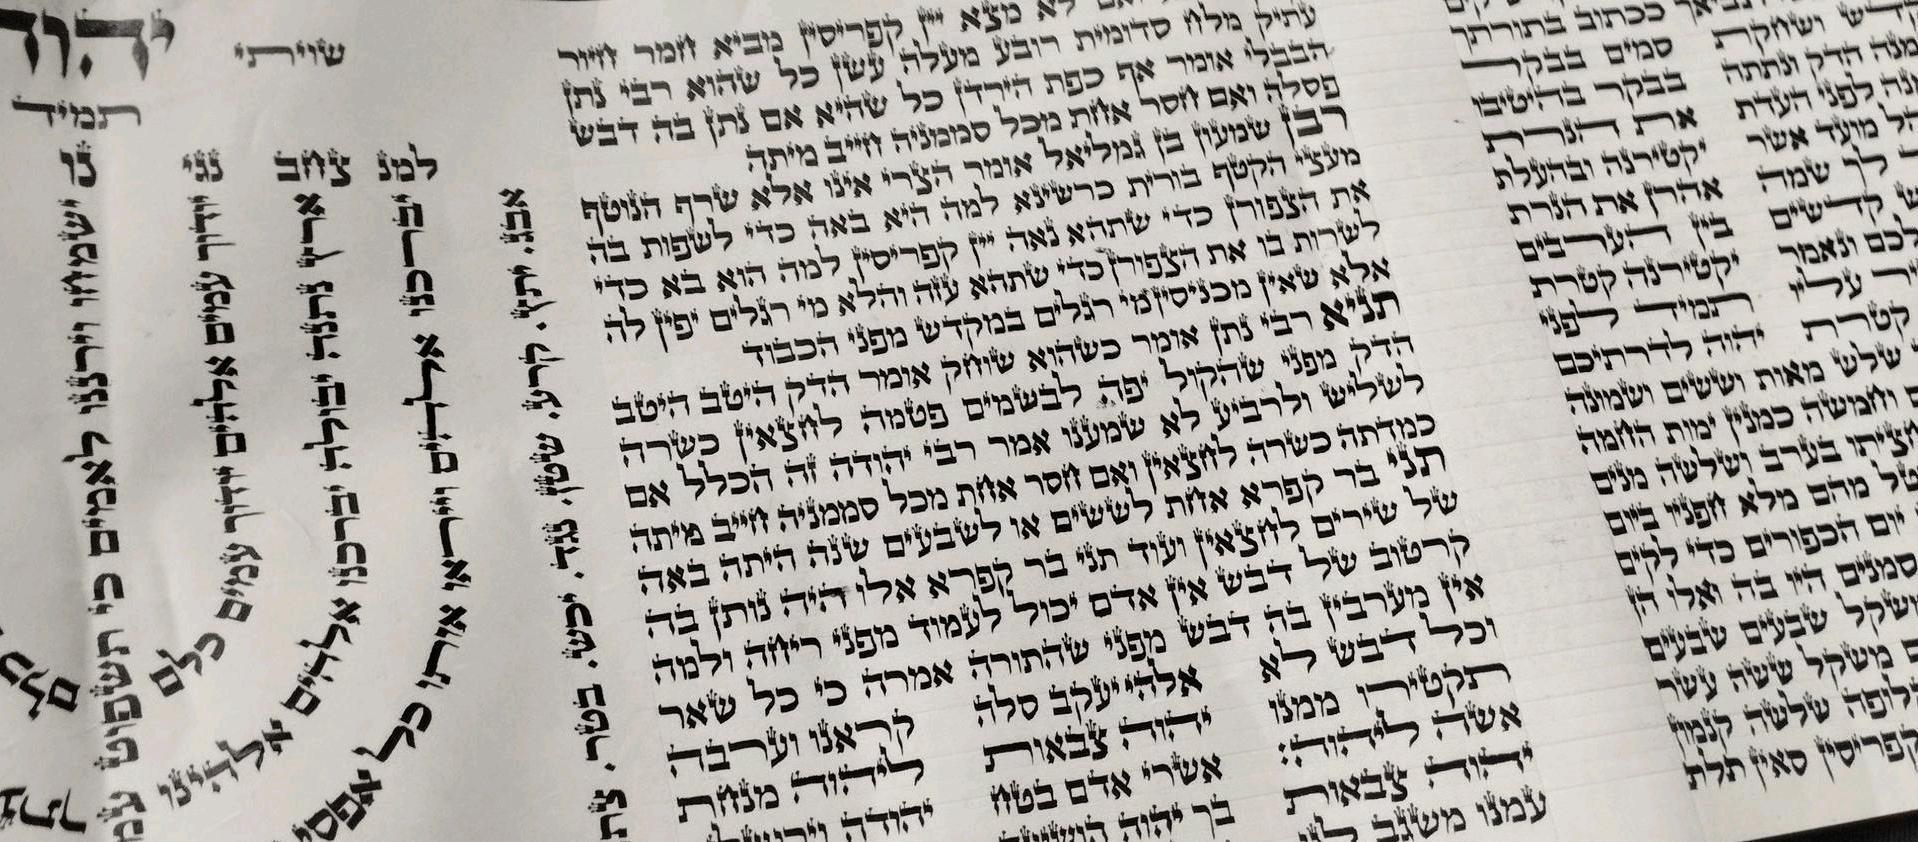 ככתוב בתורתך
ושחקת סמים בבקר
הדק ונתתה בבקר בהיטיבו
לפני העדת את הנרת
מועד אשר יקטירנה ובהעלת
לך שמה אהרן את הנרת
קדשים בין הערבים
לכם ונאמר יקטירנה קטרת
עליו תמיד לפני
קטרת יהוה לדרתיכם
שלש מאות וששים ושמונה
וחמשה כמנין ימות החמה
בערב ושלשה מנים
מהם מלא חפניו ביום
יום הכפורים כדי לקים
סמנים היו בה ואלו הן
שבעים שבעים
משקל ששה עשר
שלשה קנמון
קפריסין סאין תלת
לא מצא יין קפריסין מביא חמר חיור
עתיק מלח סדומית רובע מעלה עשן כל שהוא רבי נתן
הבבלי אומר אף כפת הירדן כל שהיא אם נתן בה דבש
פסלה ואם חסר אחת מכל סממניה חייב מיתה
רבן שמעון בן גמליאל אומר הצרי אינו אלא שרף הנוטף
מעצי הקטף בורית כרשינא למה היא באה כדי לשפות בה
את הצפורן כדי שתהא נאה יין קפריסין למה הוא בא כדי
לשרות בו את הצפורן כדי שתהא עזה והלא מי רגלים יפין לה
אלא שאין מכניסין מי רגלים במקדש מפני הכבוד
תניא רבי נתן אומר כשהוא שוחק אומר הדק היטב היטב
הדק מפני שהקול יפה לבשמים פטמה לחצאין כשרה
לשליש ולרביע לא שמענו אמר רבי יהודה זה הכלל אם
כמדתה כשרה לחצאין ואם חסר אחת מכל סממניה חייב מיתה
תני בר קפרא אחת לששים או לשבעים שנה היתה באה
של שירים לחצאין ועוד תני בר קפרא אלו היה נותן בה
קרטוב של דבש אין אדם יכול לעמוד מפני ריחה ולמה
אין מערבין בה דבש מפני שהתורה אמרה כי כל שאר
וכל דבש לא אלהי יעקב סלה קראנו וערבה
תקטירו ממנו יהוה צבאות ליהוה מנחת
אשה ליהוה: אשרי אדם בטח יהודה וירושלם
יהוה צבאות בך יהוה הושיעה
עמנו משגב לנו
שויתי יהוה
תמיד
אבג. יתץ. קרע. שטן. נגד. יכש. בטר. צתג
למנ יברכנו אלהים וייראו אותו כל אפסי
צחב ארץ נתנה יבולה יברכנו אלהים אלהינו
נגי יודוך עמים אלהים יודוך עמים כלם
נו ישמחו וירננו לאמים כי תשפוט עמים
כלם